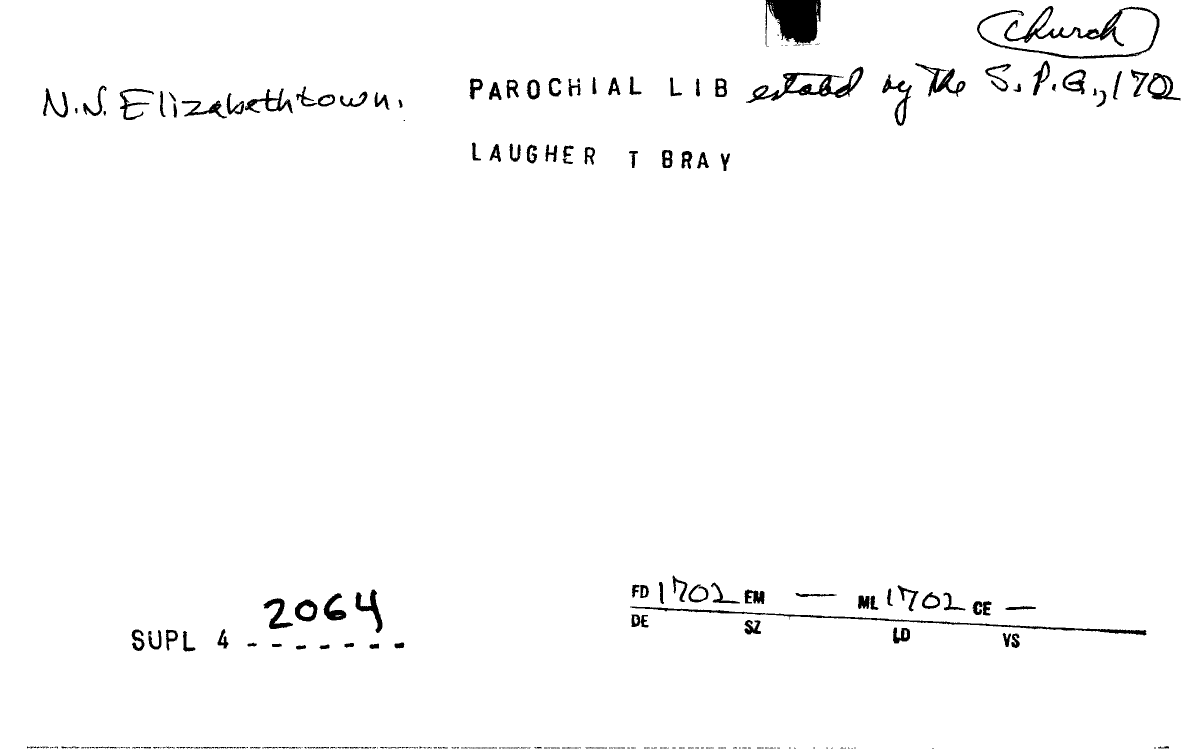 Church
N.J. Elizabethtown. PAROCHIAL LIB estabd by the S.P.G., 1702
LAUGHER T BRAY
2064
SUPL 4 - - - - - - -
FD 1702 EM — ML 1702 CE —
DE SZ LD VS